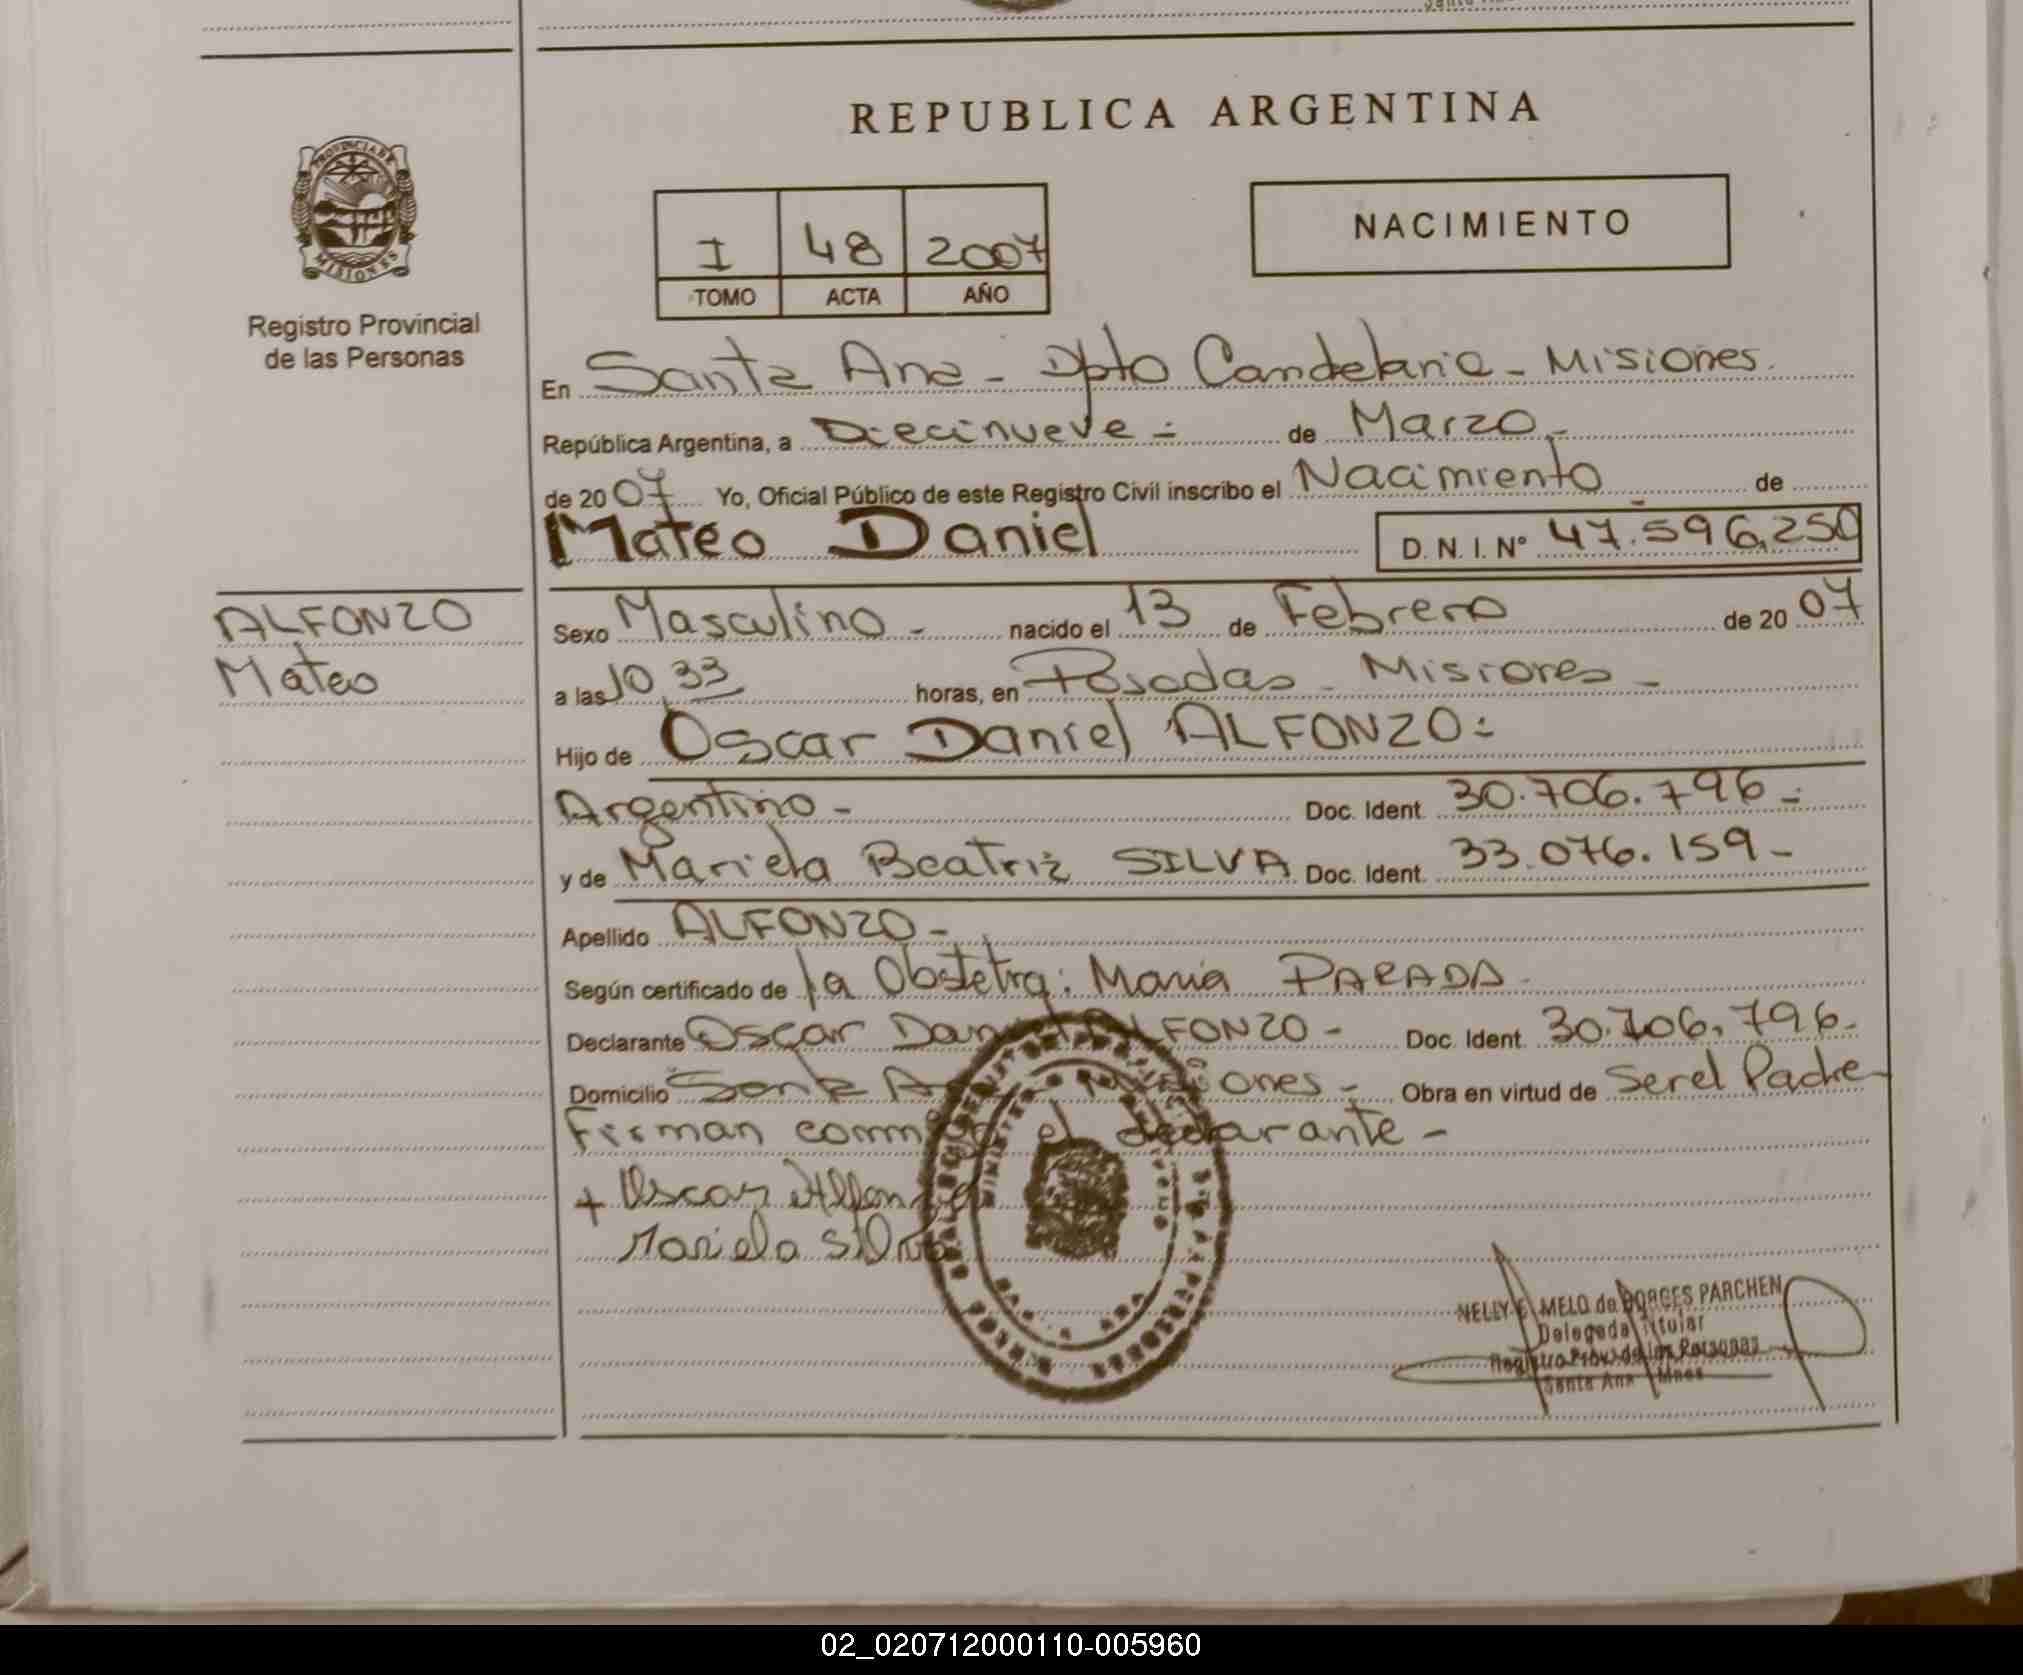 REPUBLICA ARGENTINA
PROVINCIA DE
MISIONES
Registro Provincial
de las Personas
I 48 2007
TOMO ACTA AÑO
NACIMIENTO
En Santa Ana - Dpto Candelaria - Misiones.
República Argentina, a Diecinueve - de Marzo -
de 2007 Yo, Oficial Público de este Registro Civil inscribo el Nacimiento de
Mateo Daniel D. N. I. Nº 47.596.250
ALFONZO
Mateo
Sexo Masculino - nacido el 13 de Febrero de 2007
a las 10,33 horas, en Posadas - Misiones -
Hijo de Oscar Daniel ALFONZO:
Argentino - Doc. Ident. 30.706.796 -
y de Mariela Beatriz SILVA Doc. Ident. 33.076.159 -
Apellido ALFONZO -
Según certificado de la Obstetra: Maria PARADA -
Declarante Oscar Daniel ALFONZO - Doc. Ident. 30.706.796 -
Domicilio Santa Ana Misiones - Obra en virtud de Ser el Padre
Firman conmigo el declarante -
+ Oscar Alfonzo
Mariela Silva
NELLY E. MELO de BORGES PARCHEN
Delegada Titular
Registro Prov. de las Personas
Santa Ana Mnes
02_020712000110-005960